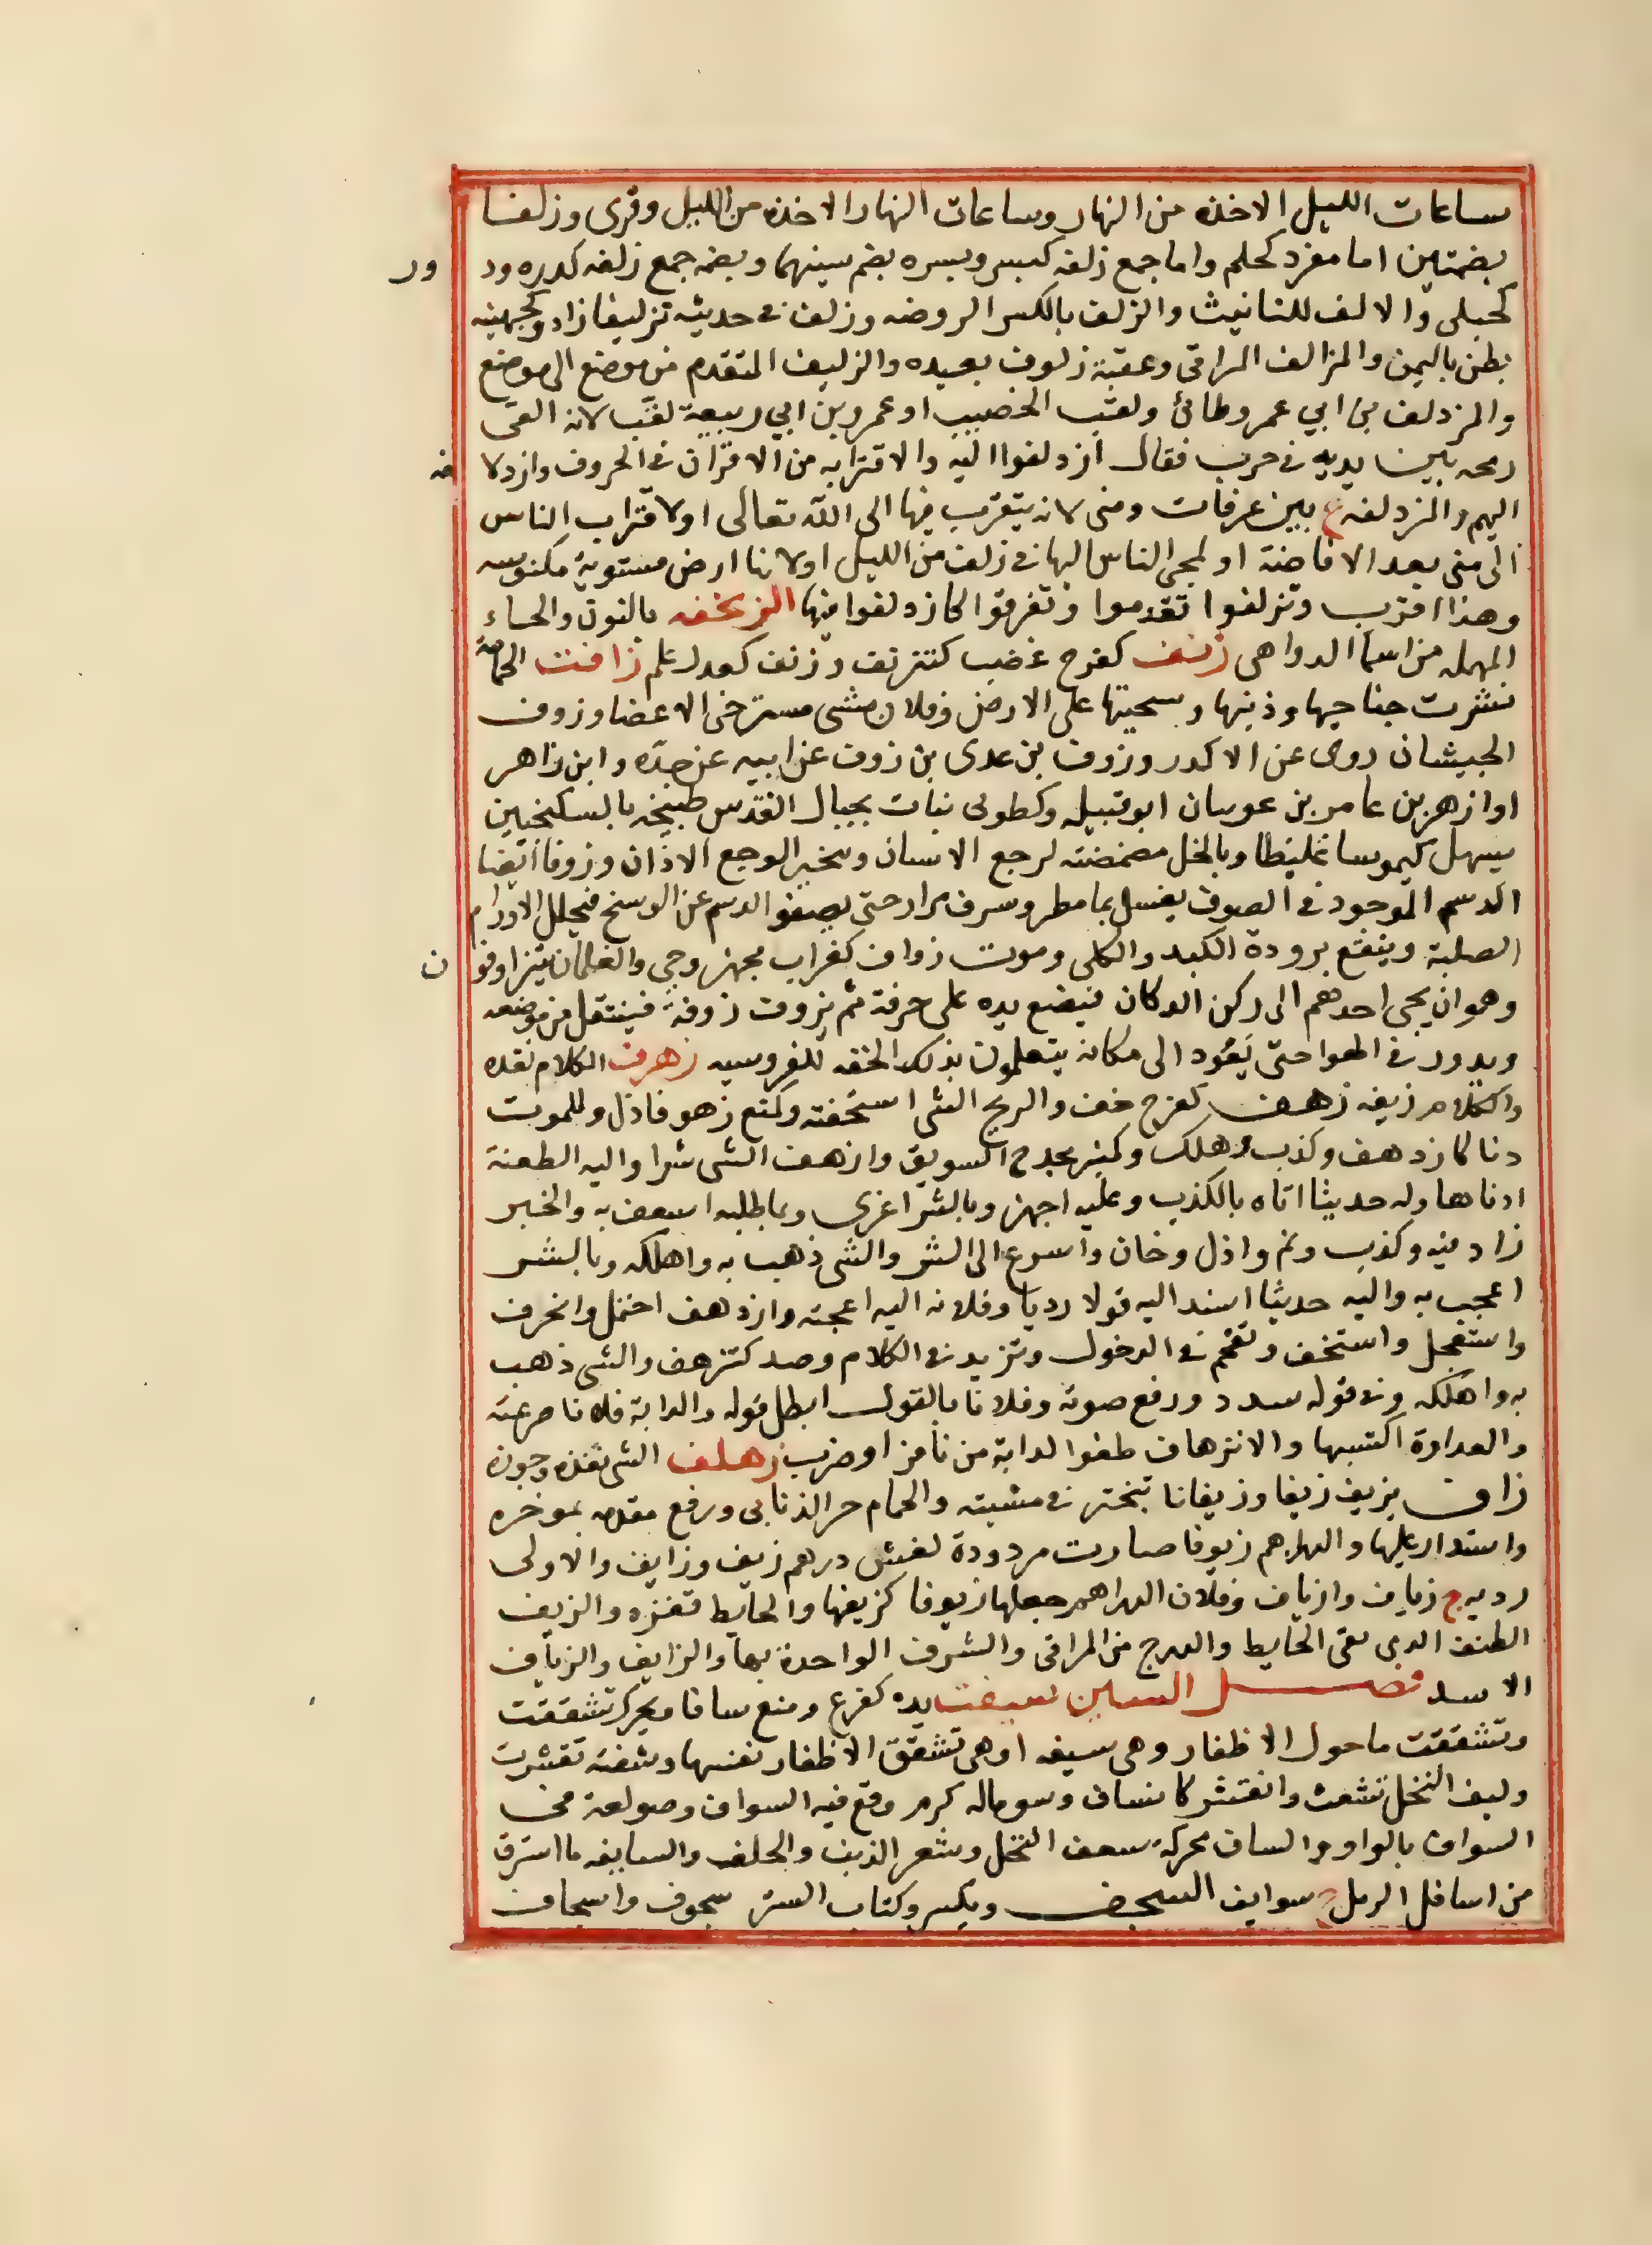 ساعات الليل الاخذه من النهار وساعات النهار الاخذه من الليل وقرى وزلفا
بضمتين اما مفرد كحلم واما جمع زلفه كبسر وبسره بضم سينهما وبضمه جمع زلفه كدره ودر
كحبلى والالف للتانيث والزلف بالكسر الروضه وزلف فى حديثه تزليفا زاد وكجهينه
بطن باليمن والمزالف المراقى وعقبة زلوف بعيده والزليف المتقدم من موضع الى موضع
والمزدلف بن ابي عمرو طائى ولقب الخصيب او عمرو بن ابي ربيعة لقب لانه القى
رمحه بين يديه فى حرب فقال ازدلفوا اليه والاقترابه من الاقران فى الحروف وازدلا فه
اليهم والمزدلفه ع بين عرفات ومنى لانه يتقرب فيها الى الله تعالى او لاقتراب الناس
الى منى بعد الافاضة او لمجى الناس اليها فى زلف من الليل او لانها ارض مستوية مكنوسه
وهذا اقرب وتزلفوا تقدموا وتفرقوا كازدلفوا فيها الزنحفه بالنون والحاء
المهمله من اسما الدواهى زنف كفرح غضب كتزنف وزنف كعدل علم زافت الحمامة
نشرت جناحيها وذنبها وسحبتها على الارض وفلان مشى مسترخى الاعضا وزوف
الجيشان روى عن الاكدر وزوف بن عدى بن زوف عن ابيه عن جده وابن زاهر
او ازهر بن عامر بن عوسان ابو قبيله وكطوبى نبات بجبال القدس طبيخه بالسكنجبين
يسهل كيموسا غليظا وبالخل مضمضته لوجع الاسنان وتبخير الوجع الاذان وزوفا ايضا
الدسم الموجود فى الصوف يغسل بما مطر وسرف مرار حتى يصفو الدسم عن الوسخ فيحلل الاورام
الصلبة وينفع برودة الكبد والكلى وموت زواف كغراب مجهز وحى والغلمان يتزاوفو ن
وهو ان يجى احدهم الى ركن الدكان فيضع يده على حرفة ثم يزوف زوفة فينتقل من موضعه
ويدور فى الهوا حتى يعود الى مكانه يتعلمون بذلك الخفه للفروسيه زهرف الكلام نقده
والكلام زيفه زهف كفرح خف والريح الشى استخفته وكمنع زهوفا ذل وللموت
دنا كازدهف وكذب وهلك وكمنبر مجدح السويق وازهف الشى شرا واليه الطعنة
ادناها وله حديثا اتاه بالكذب وعليه اجهز وبالشر اغرى وبما طلبه اسعف به والخبر
زاد فيه وكذب ونم واذل وخان واسرع الى الشر والشى ذهب به واهلكه وبالشر
اعجب به واليه حديثا اسند اليه قولا رديا وفلانه اليه اعجبته وازدهف احتمل وانحرف
واستعجل واستخف وتقحم فى الدخول وتزيد فى الكلام وصد كتزهف والشى ذهب
به واهلكه وفى قوله سدد ورفع صوته وفلانا بالقول ابطل قوله والدابة فلانا صرعته
والعداوة اكتسبها والانزهاف طفو الدابة من نافز او ضرب زهلف الشى نفذه وجوزه
زاف يزيف زيفا وزيفانا تبختر فى مشيته والحمام جر الذنابى ورفع مقدمه بموخره
واستدار عليها والدراهم زيوفا صارت مردودة لغش درهم زيف وزايف والاولى
رديه ج زياف وازياف وفلان الدراهم جعلها زيوفا كزيفها والحايط قفزه والزيف
الطنف الذى يقى الحايط والدرج من المراقى والشرف الواحدة بهاء والزايف والزياف
الاسد فصل السين سيفت يده كفرح ومنع سافا ويحرك تشققت
وتشققت ما حول الاظفار وهى سيفه او هى تشقق الاظفار نفسها وشفته تقشرت
وليف النخل تشعث وانقشر كانساف وسوماله كرم وقع فيه السواف وصولعة فى
السواف بالواو والساف محركة سعف النخل وشعر الذنب والحلف والسايفه ما استرق
من اسافل الرمل ج سوايف السجف ويكسر وكتاب الستر سجوف واسجاف